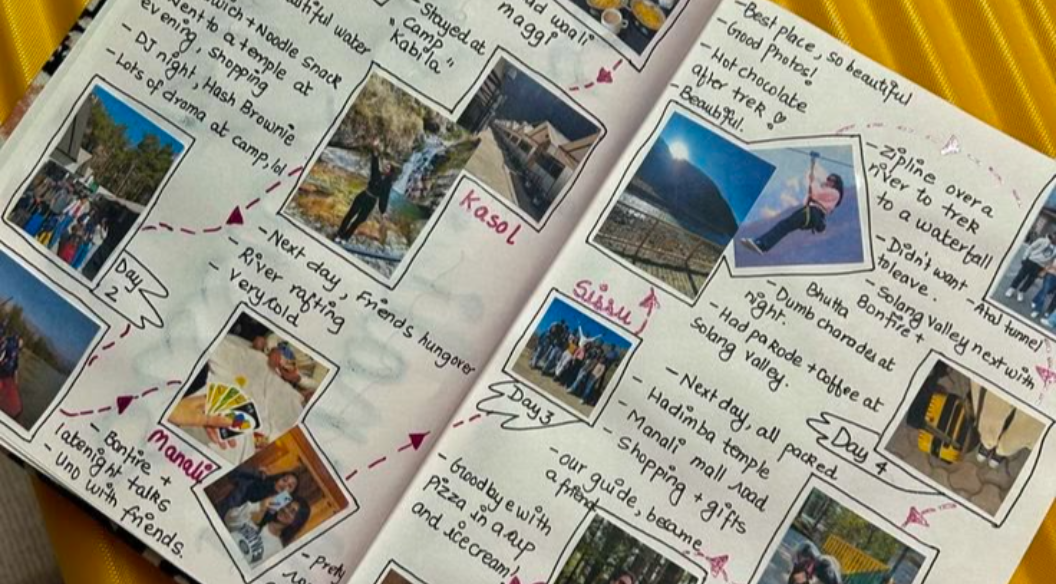 beautiful water
+ Noodle snack
went to a temple at
evening, shopping
- DJ night, Hash Brownie
- Lots of drama at camp, lol
- Stayed at
"Camp
Kabila"
waali
maggi
Kasol
Day
2
- Next day, Friends hungover
- River rafting
- Very cold
Manali
- Bonfire +
latenight talks
- Uno with friends.
- prety
-Best place, so beautiful
-Good Photos!
-Hot chocolate
after treR
-Beautiful.
Sissu
- Zipline over a
river to treR
to a waterfall
- Didn't want
to leave.
- Atal tunnel
- Solang valley next with
Bhutta
Bonfire +
- Dumb charades at
night.
- Had paRode + Coffee at
Solang Valley.
Day 3
- Next day, all packed
- Hadimba temple
- Manali mall road
- Shopping + gifts
Day 4
-our guide, became
a friend
- Goodbye with
Pizza in a cup
and icecream